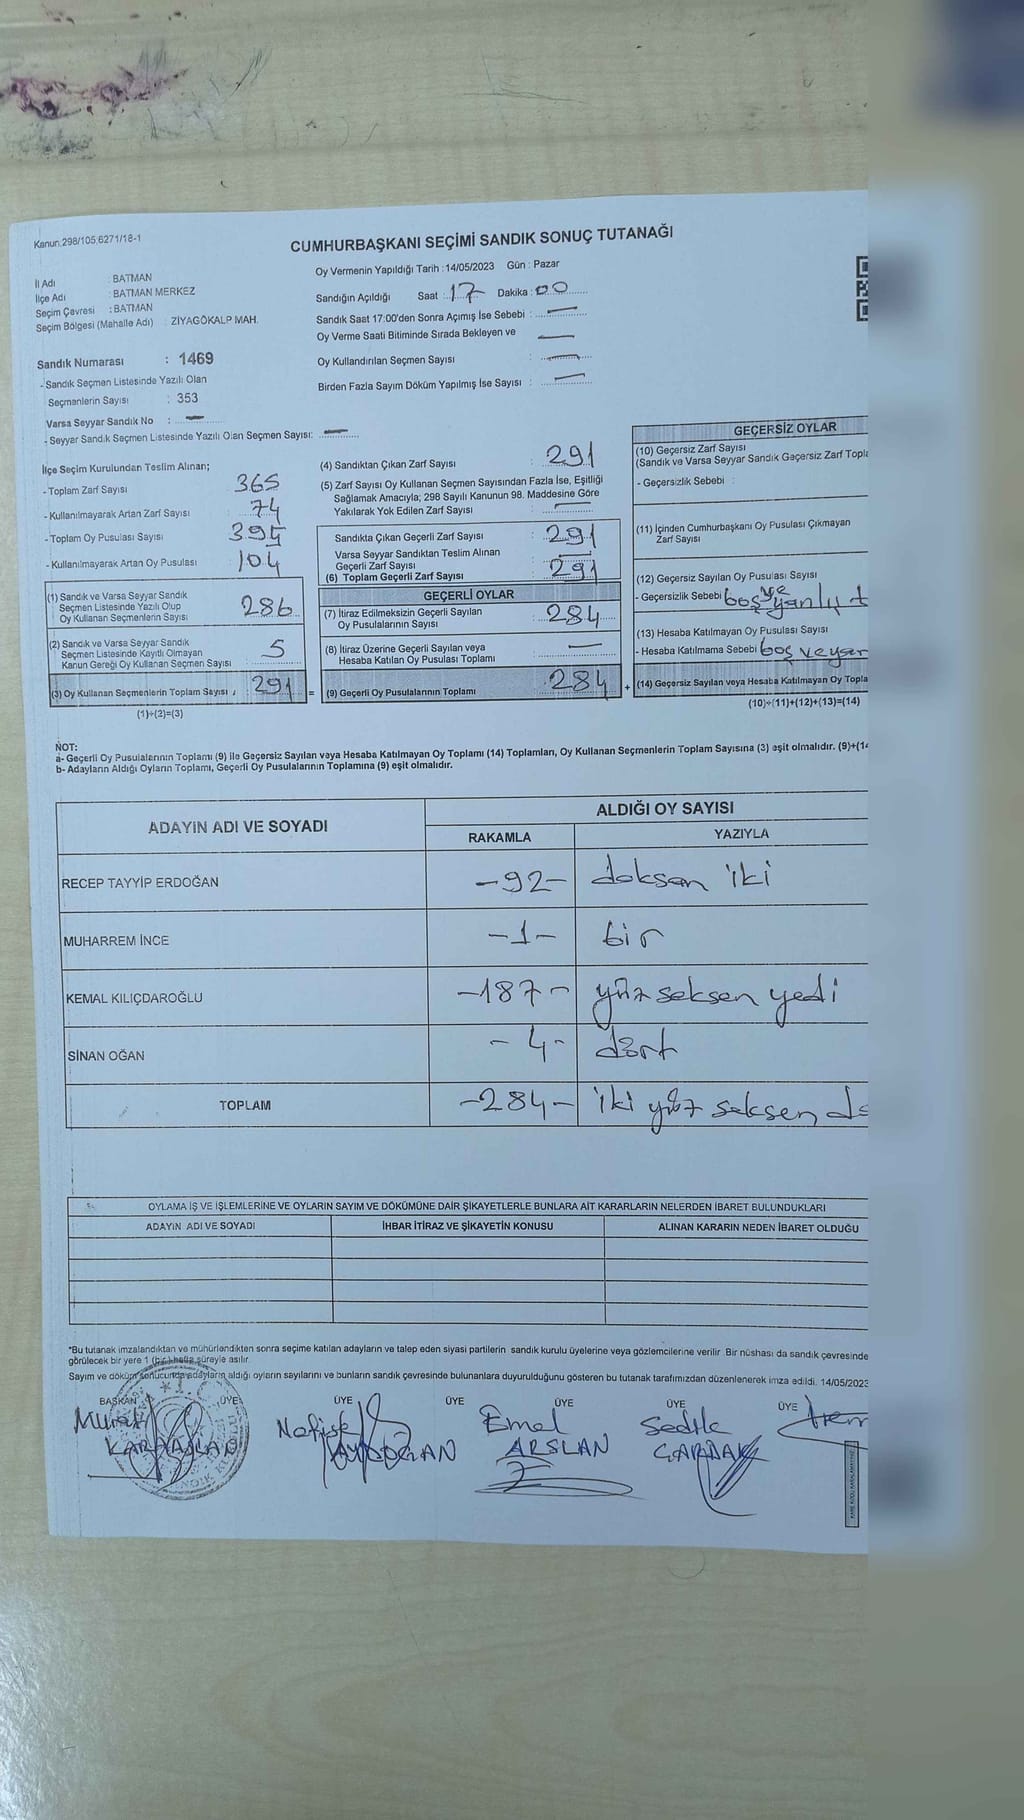 Kanun.298/105,6271/18-1
CUMHURBAŞKANI SEÇİMİ SANDIK SONUÇ TUTANAĞI
İl Adı : BATMAN
İlçe Adı : BATMAN MERKEZ
Seçim Çevresi : BATMAN
Seçim Bölgesi (Mahalle Adı) : ZİYAGÖKALP MAH.
Oy Vermenin Yapıldığı Tarih : 14/05/2023 Gün : Pazar
Sandığın Açıldığı Saat : 17 Dakika : 00
Sandık Saat 17:00'den Sonra Açımış İse Sebebi : —
Oy Verme Saati Bitiminde Sırada Bekleyen ve —
Oy Kullandırılan Seçmen Sayısı : —
Birden Fazla Sayım Döküm Yapılmış İse Sayısı : —
Sandık Numarası : 1469
- Sandık Seçmen Listesinde Yazılı Olan
Seçmenlerin Sayısı : 353
Varsa Seyyar Sandık No : —
- Seyyar Sandık Seçmen Listesinde Yazılı Olan Seçmen Sayısı: —
İlçe Seçim Kurulundan Teslim Alınan;
- Toplam Zarf Sayısı 365
- Kullanılmayarak Artan Zarf Sayısı 74
- Toplam Oy Pusulası Sayısı 395
- Kullanılmayarak Artan Oy Pusulası 104
(1) Sandık ve Varsa Seyyar Sandık
Seçmen Listesinde Yazılı Olup
Oy Kullanan Seçmenlerin Sayısı 286
(2) Sandık ve Varsa Seyyar Sandık
Seçmen Listesinde Kayıtlı Olmayan
Kanun Gereği Oy Kullanan Seçmen Sayısı 5
(3) Oy Kullanan Seçmenlerin Toplam Sayısı 291 =
(1)+(2)=(3)
(4) Sandıktan Çıkan Zarf Sayısı : 291
(5) Zarf Sayısı Oy Kullanan Seçmen Sayısından Fazla İse, Eşitliği
Sağlamak Amacıyla; 298 Sayılı Kanunun 98. Maddesine Göre
Yakılarak Yok Edilen Zarf Sayısı : —
Sandıkta Çıkan Geçerli Zarf Sayısı : 291
Varsa Seyyar Sandıktan Teslim Alınan
Geçerli Zarf Sayısı : —
(6) Toplam Geçerli Zarf Sayısı : 291
GEÇERLİ OYLAR
(7) İtiraz Edilmeksizin Geçerli Sayılan
Oy Pusulalarının Sayısı : 284
(8) İtiraz Üzerine Geçerli Sayılan veya
Hesaba Katılan Oy Pusulası Toplamı : —
(9) Geçerli Oy Pusulalarının Toplamı : 284 +
GEÇERSİZ OYLAR
(10) Geçersiz Zarf Sayısı
(Sandık ve Varsa Seyyar Sandık Geçersiz Zarf Topla
- Geçersizlik Sebebi :
(11) İçinden Cumhurbaşkanı Oy Pusulası Çıkmayan
Zarf Sayısı
(12) Geçersiz Sayılan Oy Pusulası Sayısı
- Geçersizlik Sebebi boş ve yanlış
(13) Hesaba Katılmayan Oy Pusulası Sayısı
- Hesaba Katılmama Sebebi boş
(14) Geçersiz Sayılan veya Hesaba Katılmayan Oy Topla
(10)+(11)+(12)+(13)=(14)
NOT:
a- Geçerli Oy Pusulalarının Toplamı (9) ile Geçersiz Sayılan veya Hesaba Katılmayan Oy Toplamı (14) Toplamları, Oy Kullanan Seçmenlerin Toplam Sayısına (3) eşit olmalıdır. (9)+(14
b- Adayların Aldığı Oyların Toplamı, Geçerli Oy Pusulalarının Toplamına (9) eşit olmalıdır.
ADAYIN ADI VE SOYADI ALDIĞI OY SAYISI
RAKAMLA YAZIYLA
RECEP TAYYİP ERDOĞAN -92- doksan iki
MUHARREM İNCE -1- bir
KEMAL KILIÇDAROĞLU -187- yüz seksen yedi
SİNAN OĞAN -4- dört
TOPLAM -284- iki yüz seksen dö
OYLAMA İŞ VE İŞLEMLERİNE VE OYLARIN SAYIM VE DÖKÜMÜNE DAİR ŞİKAYETLERLE BUNLARA AİT KARARLARIN NELERDEN İBARET BULUNDUKLARI
ADAYIN ADI VE SOYADI İHBAR İTİRAZ VE ŞİKAYETİN KONUSU ALINAN KARARIN NEDEN İBARET OLDUĞU
*Bu tutanak imzalandıktan ve mühürlendikten sonra seçime katılan adayların ve talep eden siyasi partilerin sandık kurulu üyelerine veya gözlemcilerine verilir. Bir nüshası da sandık çevresinde
görülecek bir yere 1 (bir) hafta süreyle asılır.
Sayım ve döküm sonucunda adayların aldığı oyların sayılarını ve bunların sandık çevresinde bulunanlara duyurulduğunu gösteren bu tutanak tarafımızdan düzenlenerek imza edildi. 14/05/2023
BAŞKAN ÜYE ÜYE ÜYE ÜYE ÜYE ÜYE
Murat Nafise Emel
KARAASLAN AYDOĞAN ARSLAN